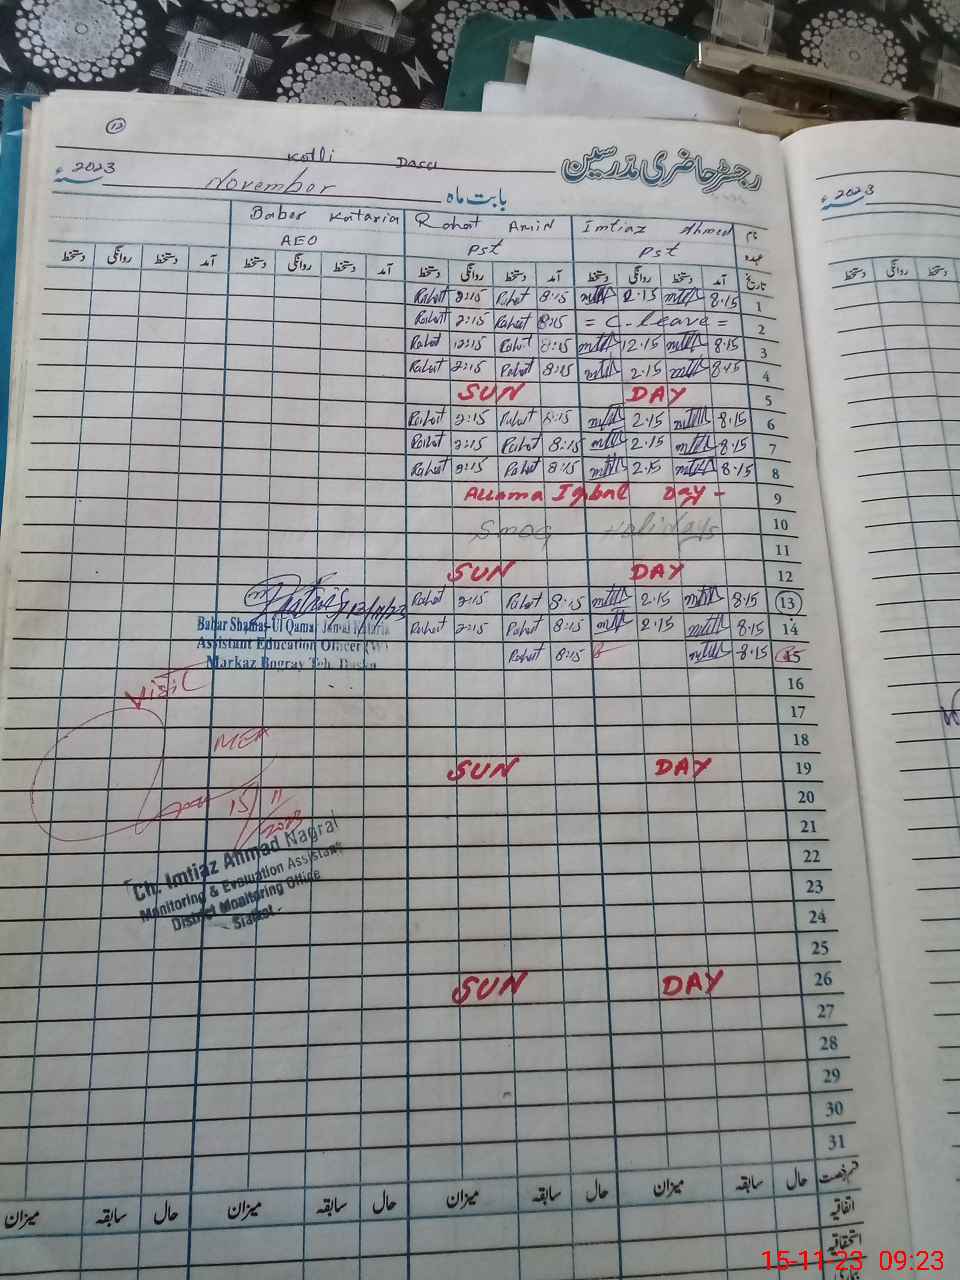 12
Kotli Dasu
رجسٹر حاضری مدرسین
2023ء
November
بابت ماہ
2023ء
نام Imtiaz Ahmed Rahat Amin Baber Kataria
عہدہ Pst Pst AEO
تاریخ آمد دستخط روانگی دستخط آمد دستخط روانگی دستخط آمد دستخط روانگی دستخط آمد دستخط روانگی دستخط
دستخط روانگی دستخط
Rahat 2:15 Rahat 8:15 2.15 8.15 1
Rahat 2:15 Rahat 8:15 = C-leave = 2
Rahat 12:15 Rahat 8:15 12.15 8.15 3
Rahat 2:15 Rahat 8:15 2.15 8.15 4
SUN DAY 5
Rahat 2:15 Rahat 8:15 2.15 8.15 6
Rahat 2:15 Rahat 8:15 2.15 8.15 7
Rahat 2:15 Rahat 8:15 2.15 8.15 8
Allama Iqbal Day - 9
Smog Holidays 10
11
SUN DAY 12
Rahat 2:15 Rahat 8:15 2.15 8.15 13
Rahat 2:15 Rahat 8:15 2.15 8.15 14
Rahat 8:15 8.15 15
Babar Shamas-Ul Qamar Jamal Kataria
Assistant Education Officer (W)
Markaz Bogray Teh. Daska
16
Visit
17
MEA
18
SUN DAY 19
15/11/2023
20
21
Ch. Imtiaz Ahmad Nagral
Monitoring & Evaluation Assistant
District Monitoring Office
Sialkot
22
23
24
25
SUN DAY 26
27
28
29
30
31
قسم رخصت حال سابقہ میزان حال سابقہ میزان حال سابقہ میزان حال سابقہ میزان
اتفاقیہ
استحقاقیہ
15-11-23 09:23